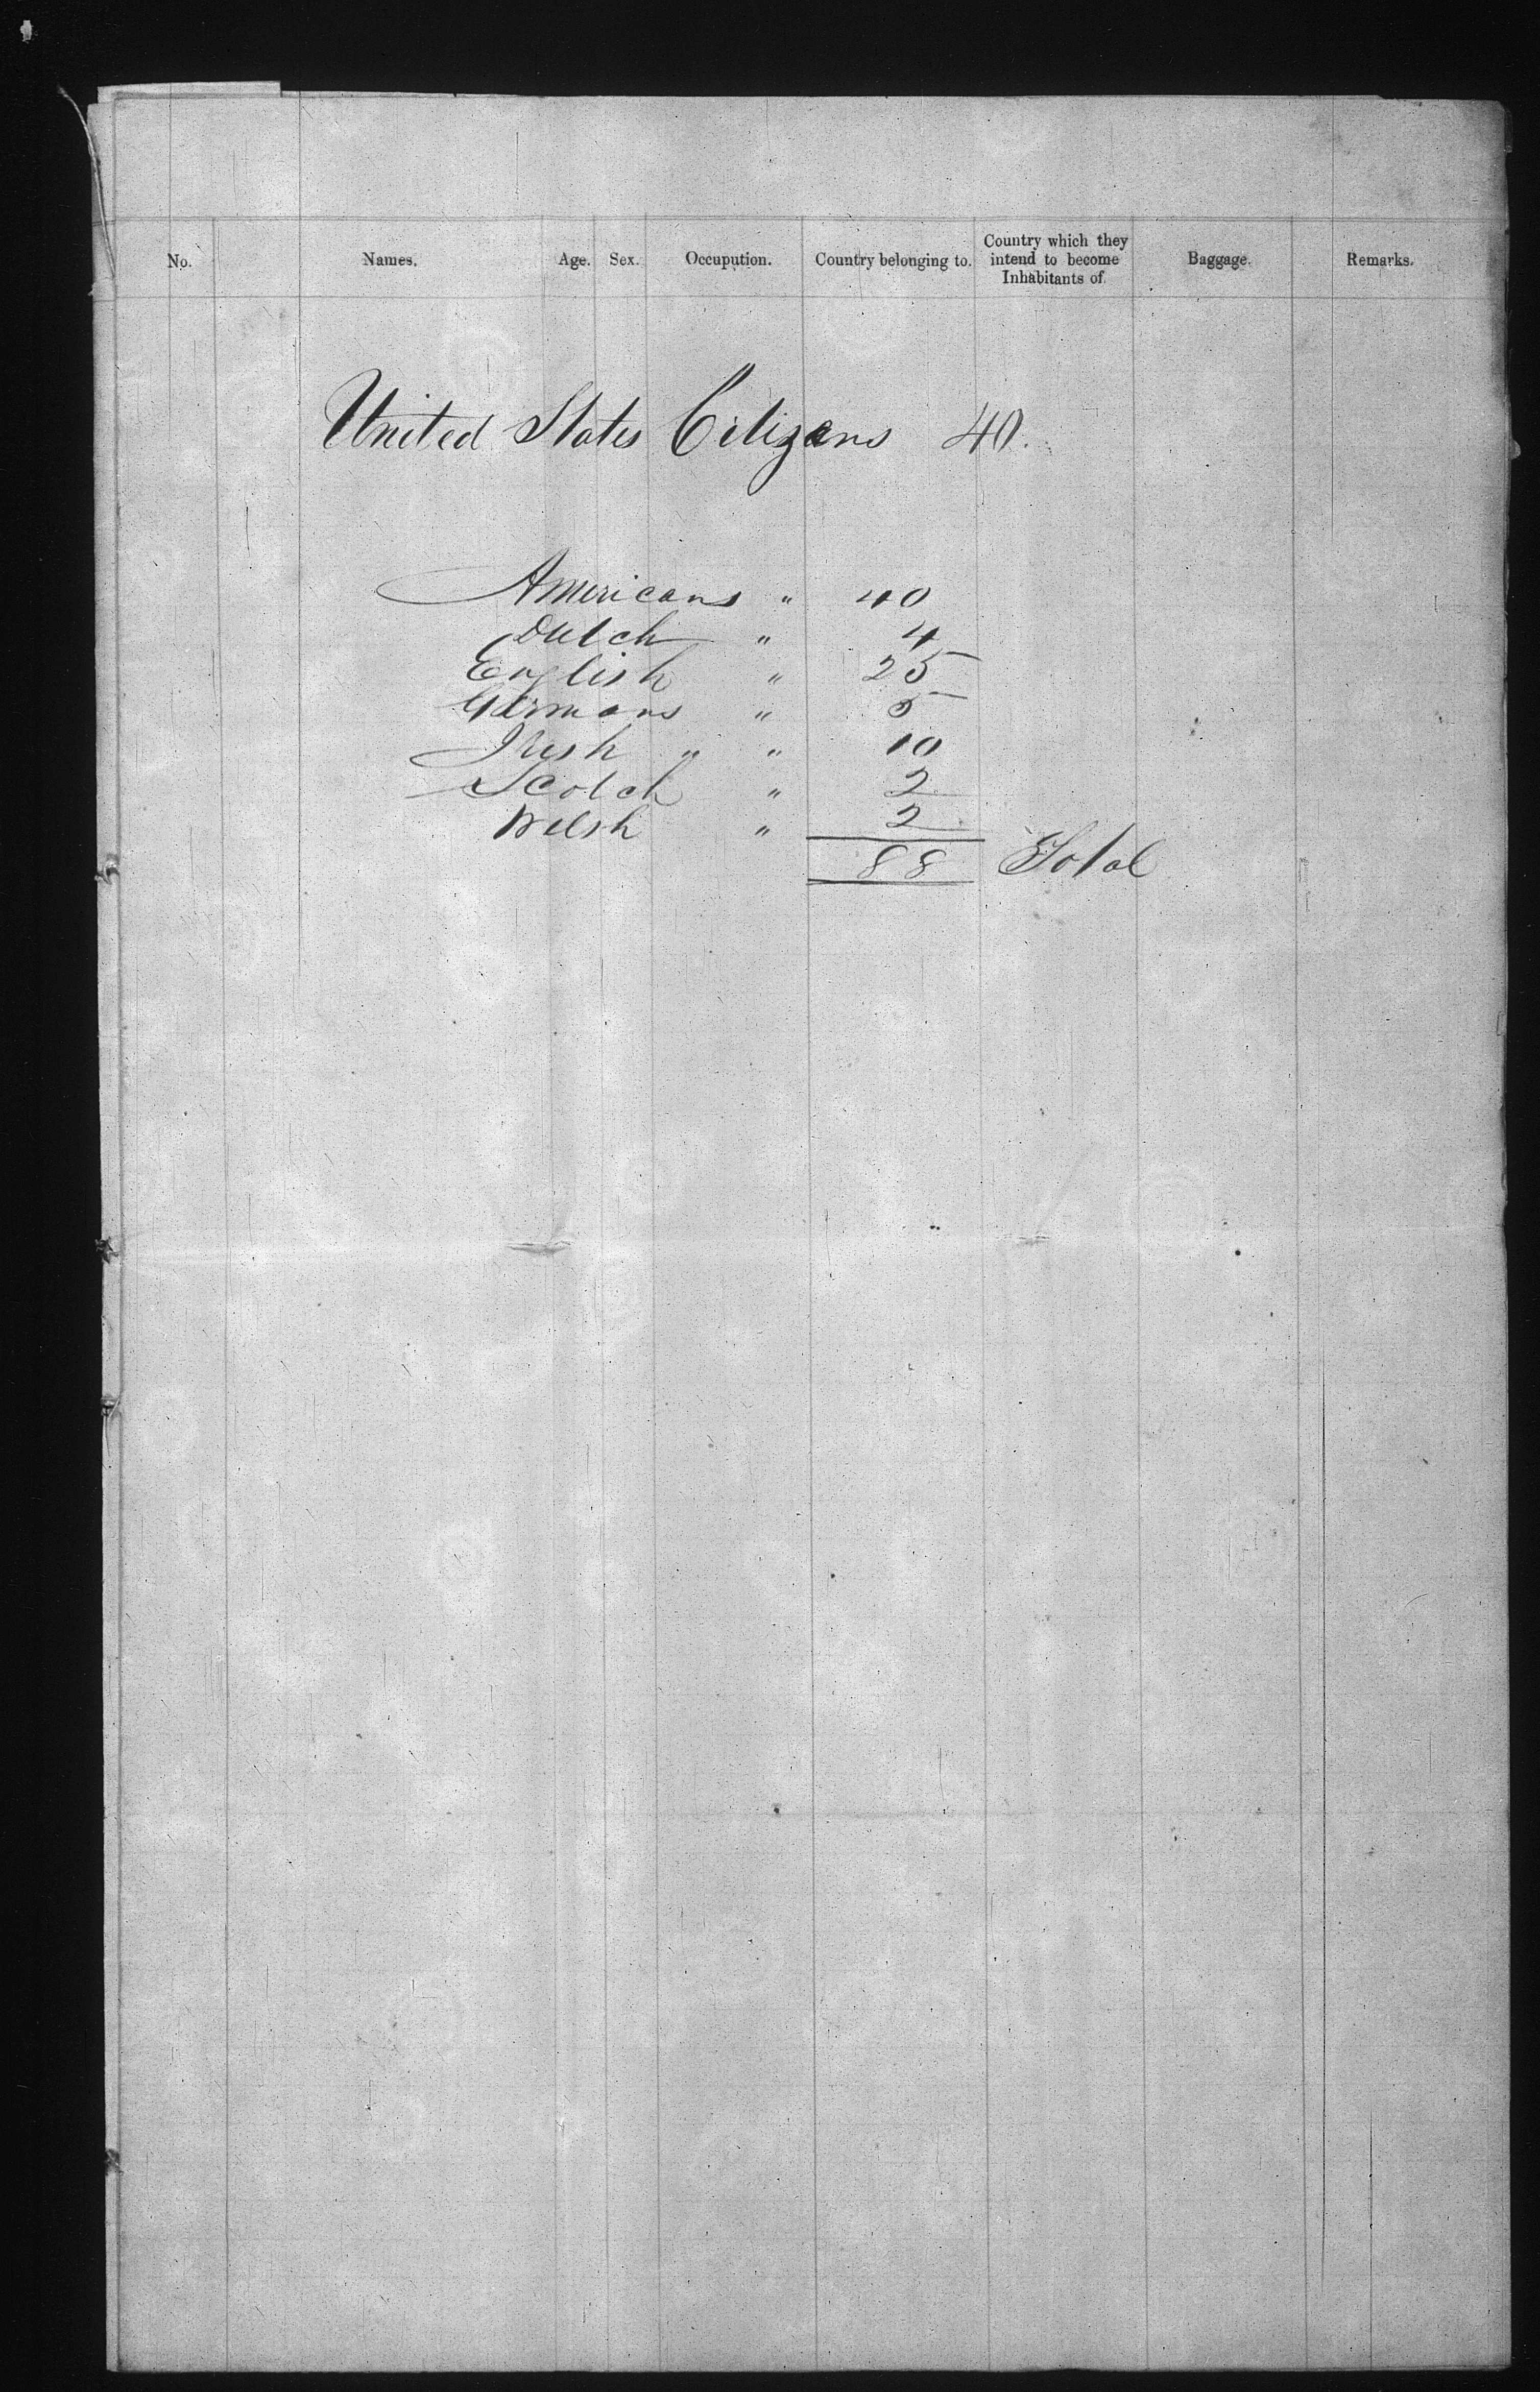 No. Names. Age. Sex. Occupution. Country belonging to. Country which they intend to become Inhabitants of. Baggage. Remarks.
United States Citizens 40.
Americans " 40
Dutch " 4
English " 25
Germans " 5
Irish " " 10
Scotch " 2
Welsh " 2
88 Total